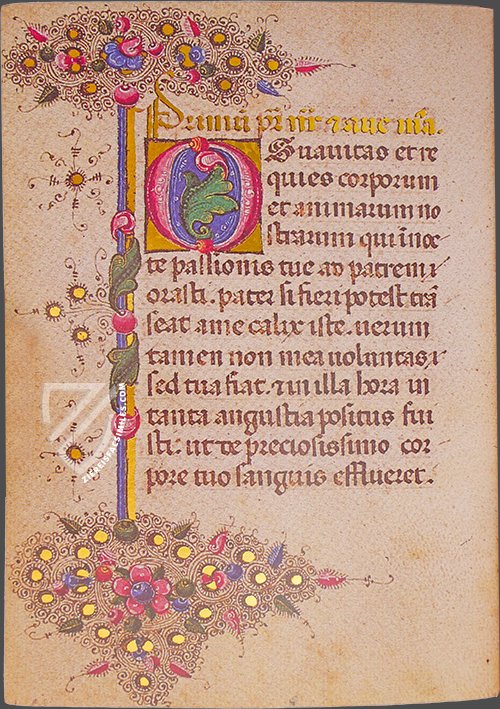 Primū pr̄ nr̄ ⁊ aue mīa.
O Suauitas et re
quies corporum
et animarum no
strarum qui i nocte
te passionis tue ad patrem i
orasti. pater si fieri potest trā
seat a me calix iste. uerum
tamen non mea uoluntas i
sed tua fiat. ⁊ in illa hora in
tanta angustia positus fui
sti. ut te preciosissimo cor
pore tuo sanguis efflueret.
ZIEREIS FACSIMILES.COM